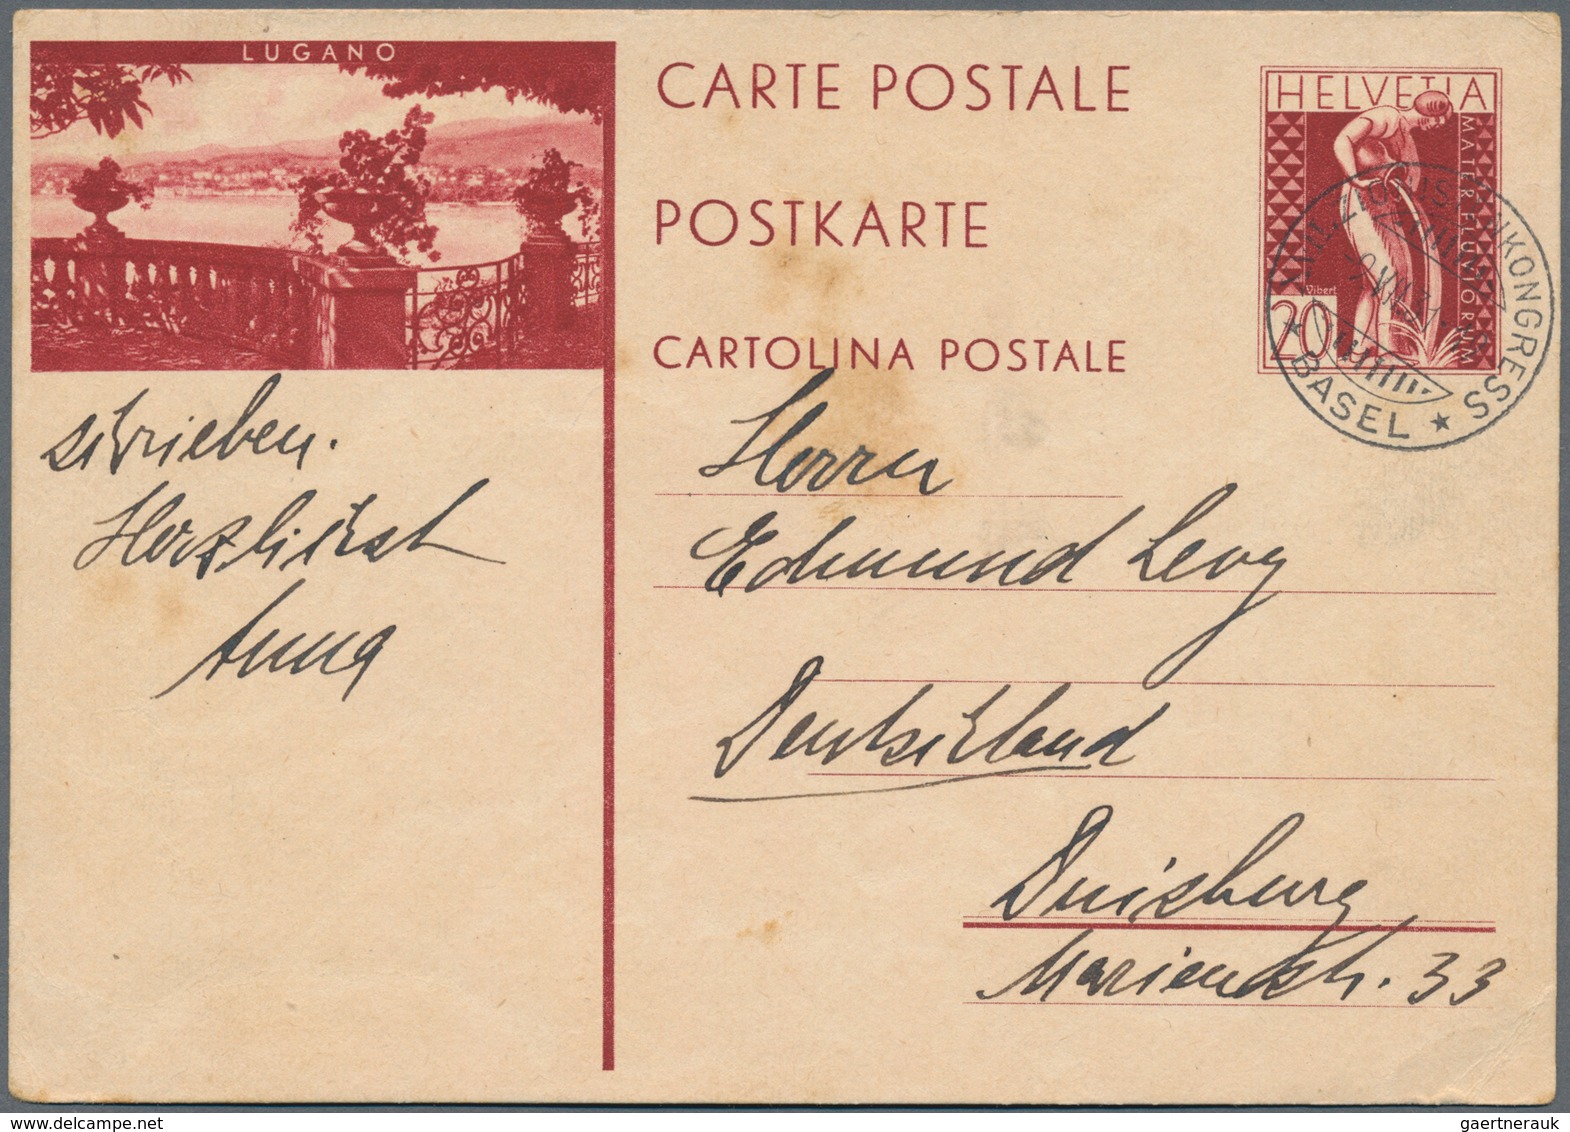 LUGANO
CARTE POSTALE
POSTKARTE
CARTOLINA POSTALE
HELVETIA
MATER FLUVIORUM
Vibert
20
XVII. ZIONISTENKONGRESS
BASEL
schrieben.
Herzlichst
Anna
Herrn
Edmund Levy
Deutschland
Duisburg
Marienstr. 33
gaertnerauk@delcampe.net